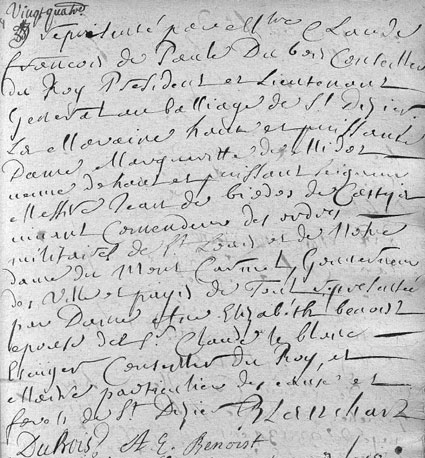 Vingt quatre
representé par Mtre Claude
francois de Paule Dubois Conseiller
du Roy President et Lieutenant
General au balliage de St Dizier
La Maraine haute et puissante
Dame Margueritte de
veuve de haut et puissant seigneur
Messire Jean de
vivant Comendeur des ordres
militaires de St Louis et de Notre
dame du Mont Carmel, Gouverneur
des Ville et pays de Toul representée
par Dame Anne Elizabeth benoist
epouse de Sr Claude le blanc
Conseiller du Roy, et
Maitre particulier des eaues et
forets de St Dizier Blanchart
DuBois A. E. Benoist